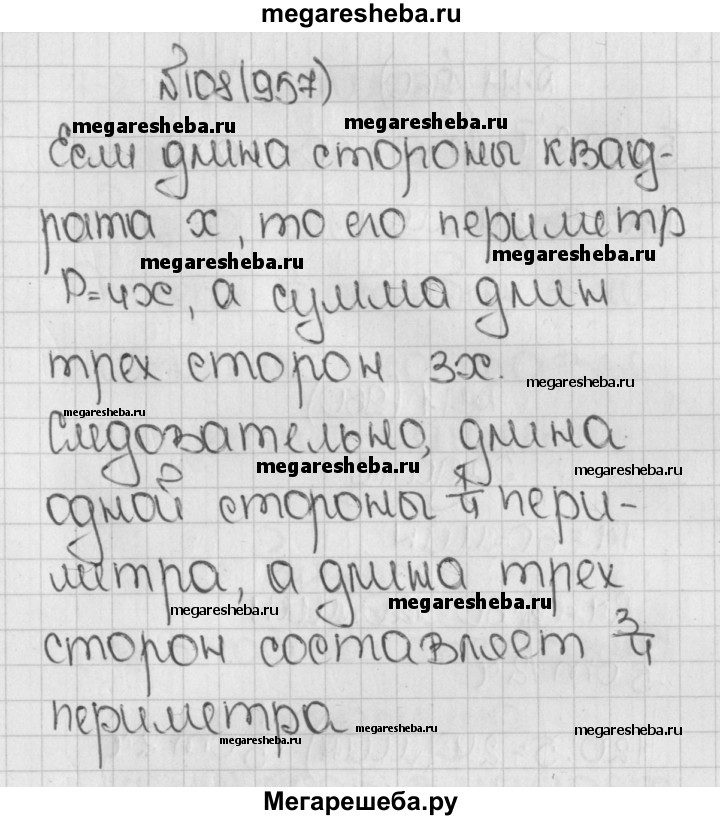 megaresheba.ru
№108(957)
megaresheba.ru megaresheba.ru
Если длина стороны квад-
рата x, то его периметр
megaresheba.ru megaresheba.ru
P=4x, а сумма длин
трех сторон 3x.
megaresheba.ru
megaresheba.ru
Следовательно, длина
megaresheba.ru megaresheba.ru
одной стороны 1/4 пери-
метра, а длина трех
megaresheba.ru megaresheba.ru
сторон составляет 3/4
периметра
megaresheba.ru megaresheba.ru megaresheba.ru
Мегарешеба.ру